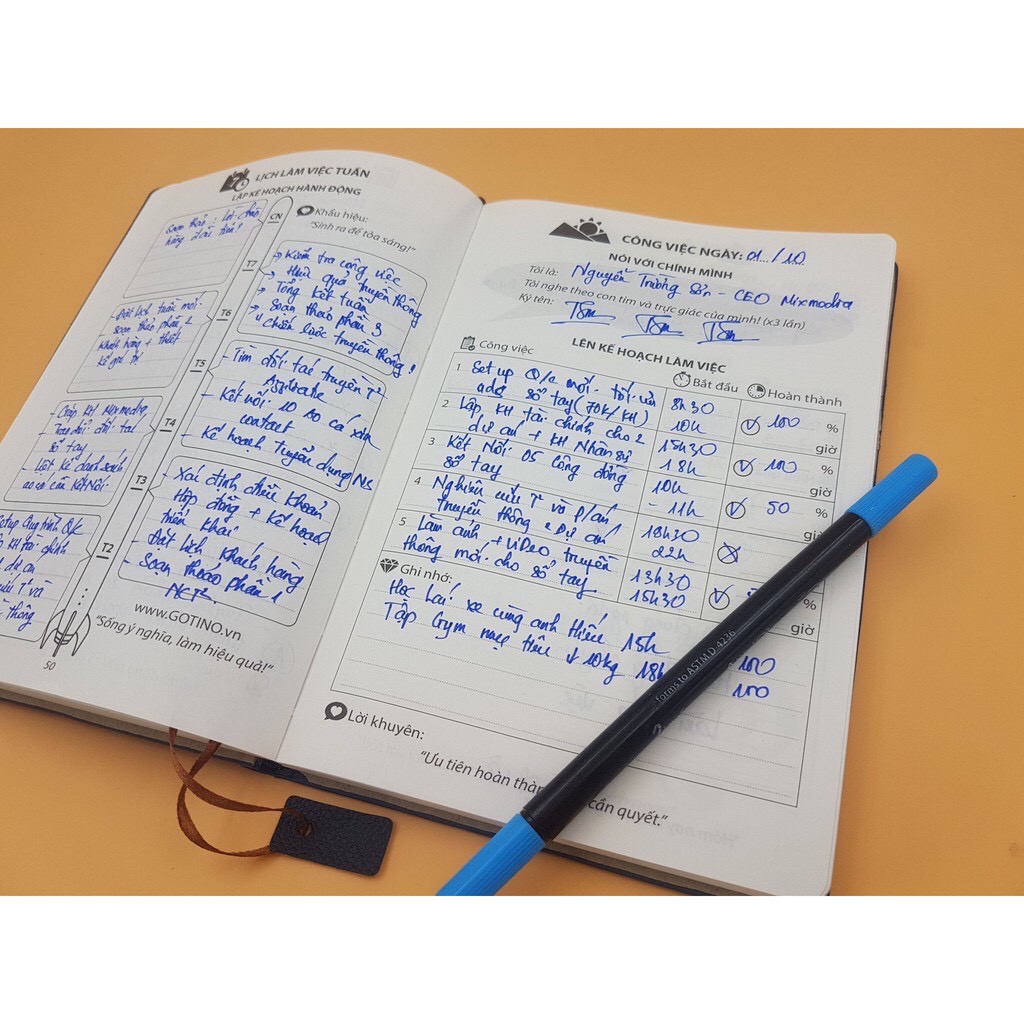 LỊCH LÀM VIỆC TUẦN
LẬP KẾ HOẠCH HÀNH ĐỘNG
CN
Khẩu hiệu:
"Sinh ra để tỏa sáng!"
T7
Kiểm tra công việc
Hiệu quả truyền thông
Tổng kết tuần
Soạn thảo phần 3
chiến lược truyền thông!
Đặt lịch tuần mới
Soạn thảo phần 2
Khách hàng + thiết
T6
T5
Tìm đối tác truyền
Kết nối 10
contact
Kế hoạch Tuyển dụng NS
Gặp KH Mixmedia
đối tác
sổ tay
Liệt kê danh sách
cần kết nối
T4
T3
Xác định điều khoản
Hợp đồng + kế hoạch
triển khai
Đặt lịch khách hàng
Soạn thảo phần 1
Setup Quy trình
KH tài chính
dự án
và
thông
T2
www.GOTINO.vn
"Sống ý nghĩa, làm hiệu quả!"
50
CÔNG VIỆC NGÀY: 01 / 10
NÓI VỚI CHÍNH MÌNH
Tôi là: Nguyễn Trường Sơn - CEO Mixmedia
Tôi nghe theo con tim và trực giác của mình! (x3 lần)
Ký tên:
LÊN KẾ HOẠCH LÀM VIỆC
Công việc Bắt đầu Hoàn thành
1 Set up Q/c mới 8h30 100 %
sổ tay (70k/KH) 10h giờ
2 Lập KH tài chính cho 2 15h30 100 %
dự án + KH Nhân sự 18h giờ
3 Kết Nối 05 cộng đồng 10h 50 %
sổ tay - 11h giờ
4 Nghiên cứu và p/án 18h30
truyền thông 2 Dự án 22h
5 Làm ảnh + Video truyền 13h30 %
thông mới cho sổ tay 15h30 giờ
Ghi nhớ:
Học Lái xe cùng anh Hiếu 15h 100
Tập Gym mục tiêu ↓ 10kg 18h 100
Lời khuyên:
"Ưu tiên hoàn cần quyết."
forms to ASTM D-4236